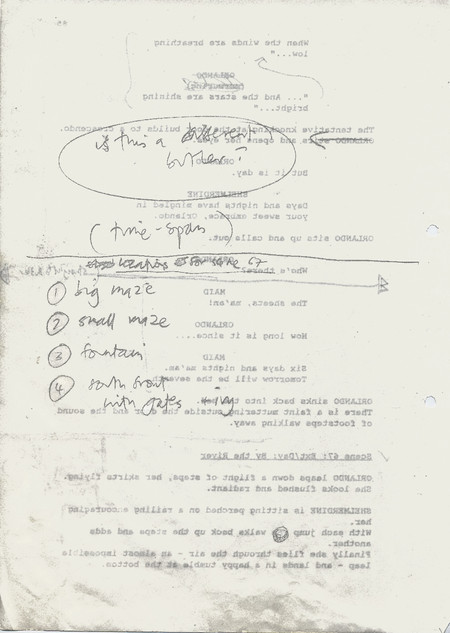 When the winds are breathing
low..."
ORLANDO
(murmuring)
"... And the stars are shining
bright..."
The tentative knocking at the door builds to a crescendo.
ORLANDO stirs and opens her eyes.
is this a different
butler?
ORLANDO
But it is day.
SHELMERDINE
Days and nights have mingled in
your sweet embrace, Orlando.
(time-span)
ORLANDO sits up and calls out.
locations for scene 67
Who's there?
MAID
The sheets, ma'am!
ORLANDO
How long is it since....
MAID
Six days and nights ma'am.
Tomorrow will be the seventh.
① big maze
② small maze
③ fountain
④ south front
with gates
ORLANDO sinks back into
There is a faint muttering outside the door and the sound
of footsteps walking away.
Scene 67: Ext/Day: By the River
ORLANDO leaps down a flight of steps, her skirts flying.
She looks flushed and radiant.
SHELMERDINE is sitting perched on a railing encouraging
her.
With each jump walks back up the steps and adds
another.
Finally she flies through the air - an almost impossible
leap - and lands in a happy tumble at the bottom.